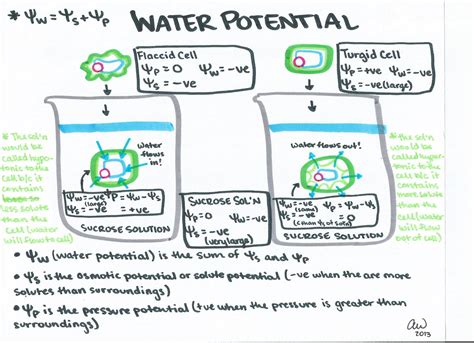 * Ψw = Ψs + Ψp
WATER POTENTIAL
Flaccid Cell
Ψp = 0 Ψw = -ve
Ψs = -ve
Turgid Cell
Ψp = +ve Ψw = -ve
Ψs = -ve (large)
* The sol'n
would be
called hypo-
tonic to the
cell b/c it
contains
less solute
than the
cell (water
will flow to cell)
water
flows
in!
Ψw = -ve Ψp = Ψw - Ψs
(large)
Ψs = -ve = +ve
SUCROSE SOLUTION
SUCROSE SOL'N
Ψp = 0 Ψw = -ve
Ψs = -ve
(very large)
water flows out!
Ψw = -ve Ψp = Ψw - Ψs
Ψs = -ve = 0
SUCROSE SOLUTION
* The sol'n
would be
called hyper-
tonic to the
cell b/c it
contains
more solute
than the
cell (water
will flow
out of cell)
• Ψw (water potential) is the sum of Ψs and Ψp
• Ψs is the osmotic potential or solute potential (-ve when the are more
solutes than surroundings)
• Ψp is the pressure potential (+ve when the pressure is greater than
surroundings)
aw
2013